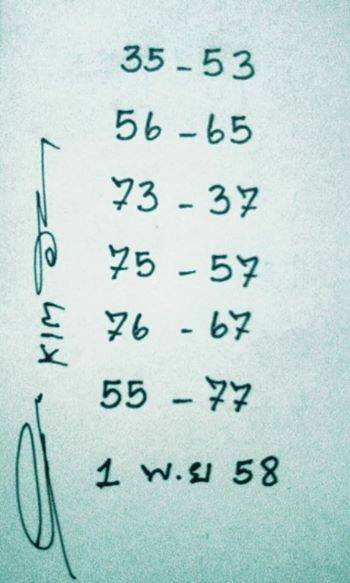 35 - 53
56 - 65
73 - 37
75 - 57
76 - 67
55 - 77
1 พ.ย 58
KIM